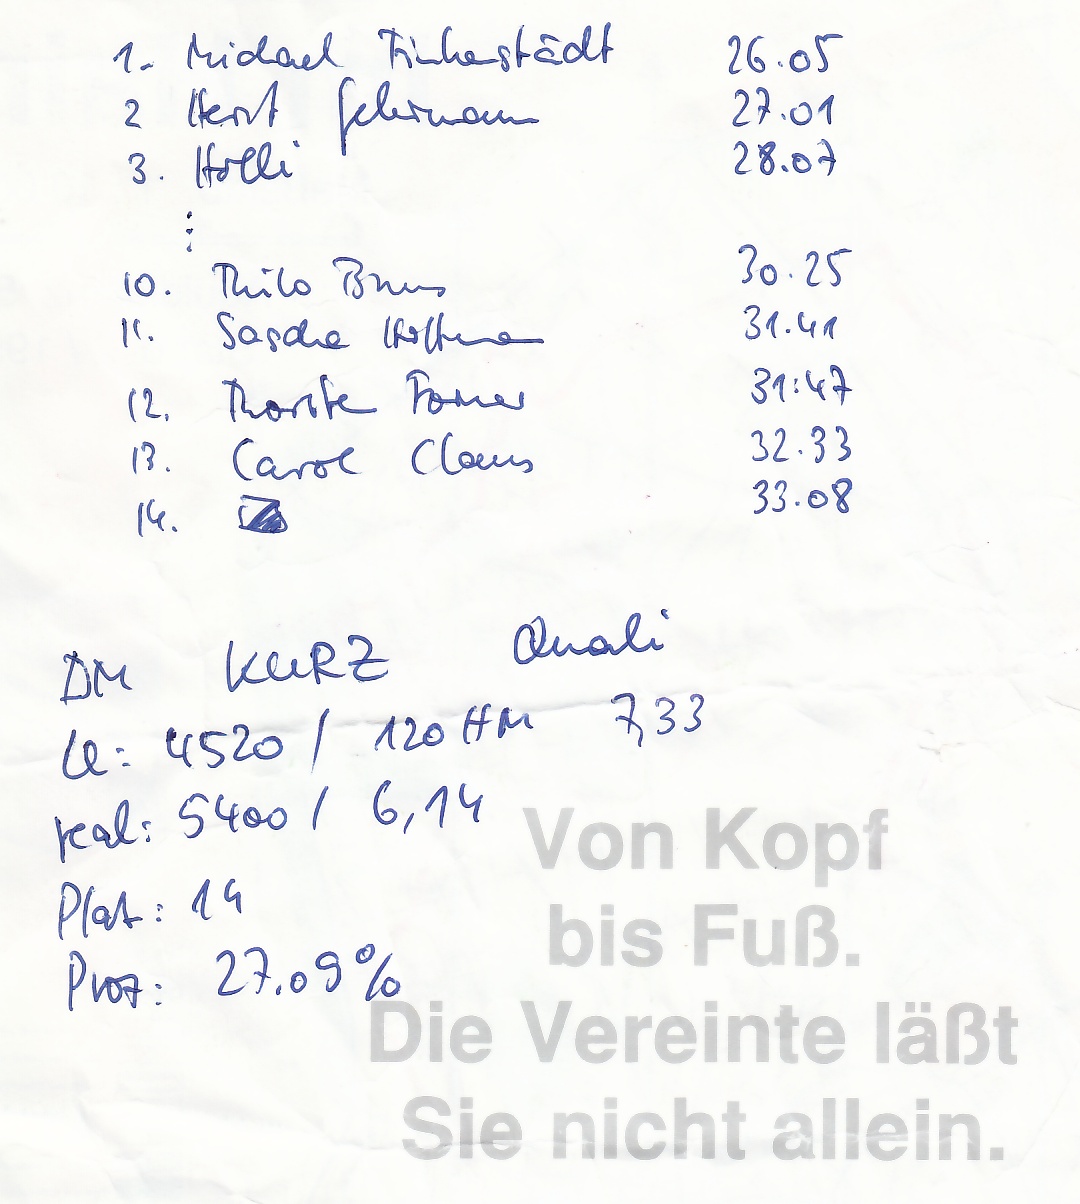 1. Michael Finkenstädt 26.05
2 Horst Gehrmann 27.01
3. Holli 28.07
⋮
10. Thilo Bruns 30.25
11. Sascha 31.41
12. Thorsten 31:47
13. Carol Claus 32.33
14. 33.08
DM KURZ Quali
LE: 4520 / 120 HM 7,33
real: 5400 / 6,14
Platz: 14
Proz: 27.09%
Von Kopf
bis Fuß.
Die Vereinte läßt
Sie nicht allein.